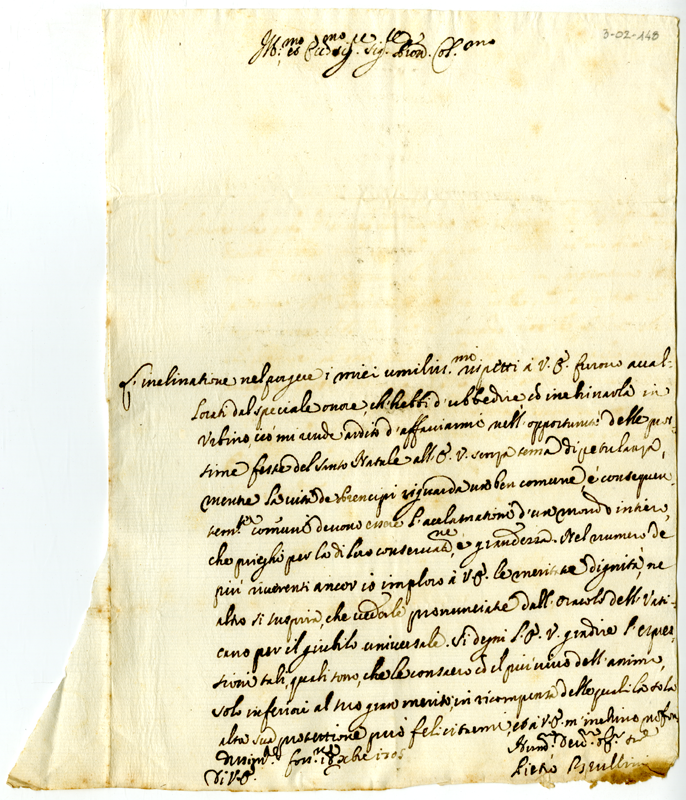 3-02-148
Ill.mo et Ecc.mo Sig.re Sig. Pron. Col.mo
L'inclinatione nel porgere i miei umiliss.mo rispetti à V. E. furono accal-
lorati dal speciale onore, ch'hebbi d'ubbedire, ed inchinarla in
Urbino, ciò mi rende ardito d'affacciarmi nell'opportunità delle pros-
sime feste del Santo Natale all'E. V. senza tema di petulanza,
mentre la vita de Prencipi riguarda un ben comune, è conseguen-
tem.te comuni devono essere l'acclamationi d'un mondo intiero,
che prieghi per la di loro conservat.ne, è grandezza. Nel numero de
più riverenti ancor io imploro à V. E. le meritate dignità, ne
altro si sospira, che vederle pronunciate dall'oracolo del Vati-
cano per il giubilo universale. Si degni l'E. V. gradire l'espres-
sioni tali, quali sono, che le consacro cò il più vivo dell'animo,
solo inferiori al suo gran merito, in ricompensa delle quali la sola
alta sua protettione può felicitarmi, ed à V. E. m'inchino
Xbre 1705
Di V. E.
Hum.mo Dev.mo
Pietro